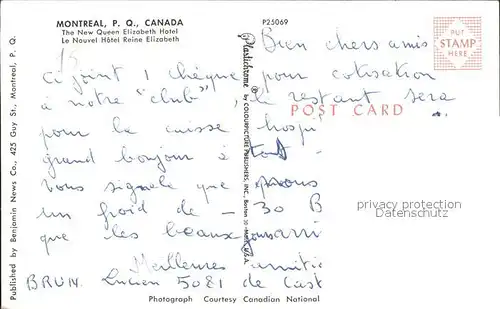 MONTREAL, P. Q., CANADA
The New Queen Elizabeth Hotel
Le Nouvel Hôtel Reine Elizabeth
P25069
PUT
STAMP
HERE
Bien chers amis
Ci joint 1 chèque pour cotisation
à notre "club", le restant sera
POST CARD
pour la caisse
grand bonjour à tous
Vous signale que nous
un froid de - 30
que les beaux jours
Meilleures amitiés
BRUN. Lucien 5081 de
Published by Benjamin News Co., 425 Guy St., Montreal, P. Q.
Plastichrome ® by COLOURPICTURE PUBLISHERS, INC., Boston 30, Mass., U.S.A.
Photograph Courtesy Canadian National
privacy protection
for collectors